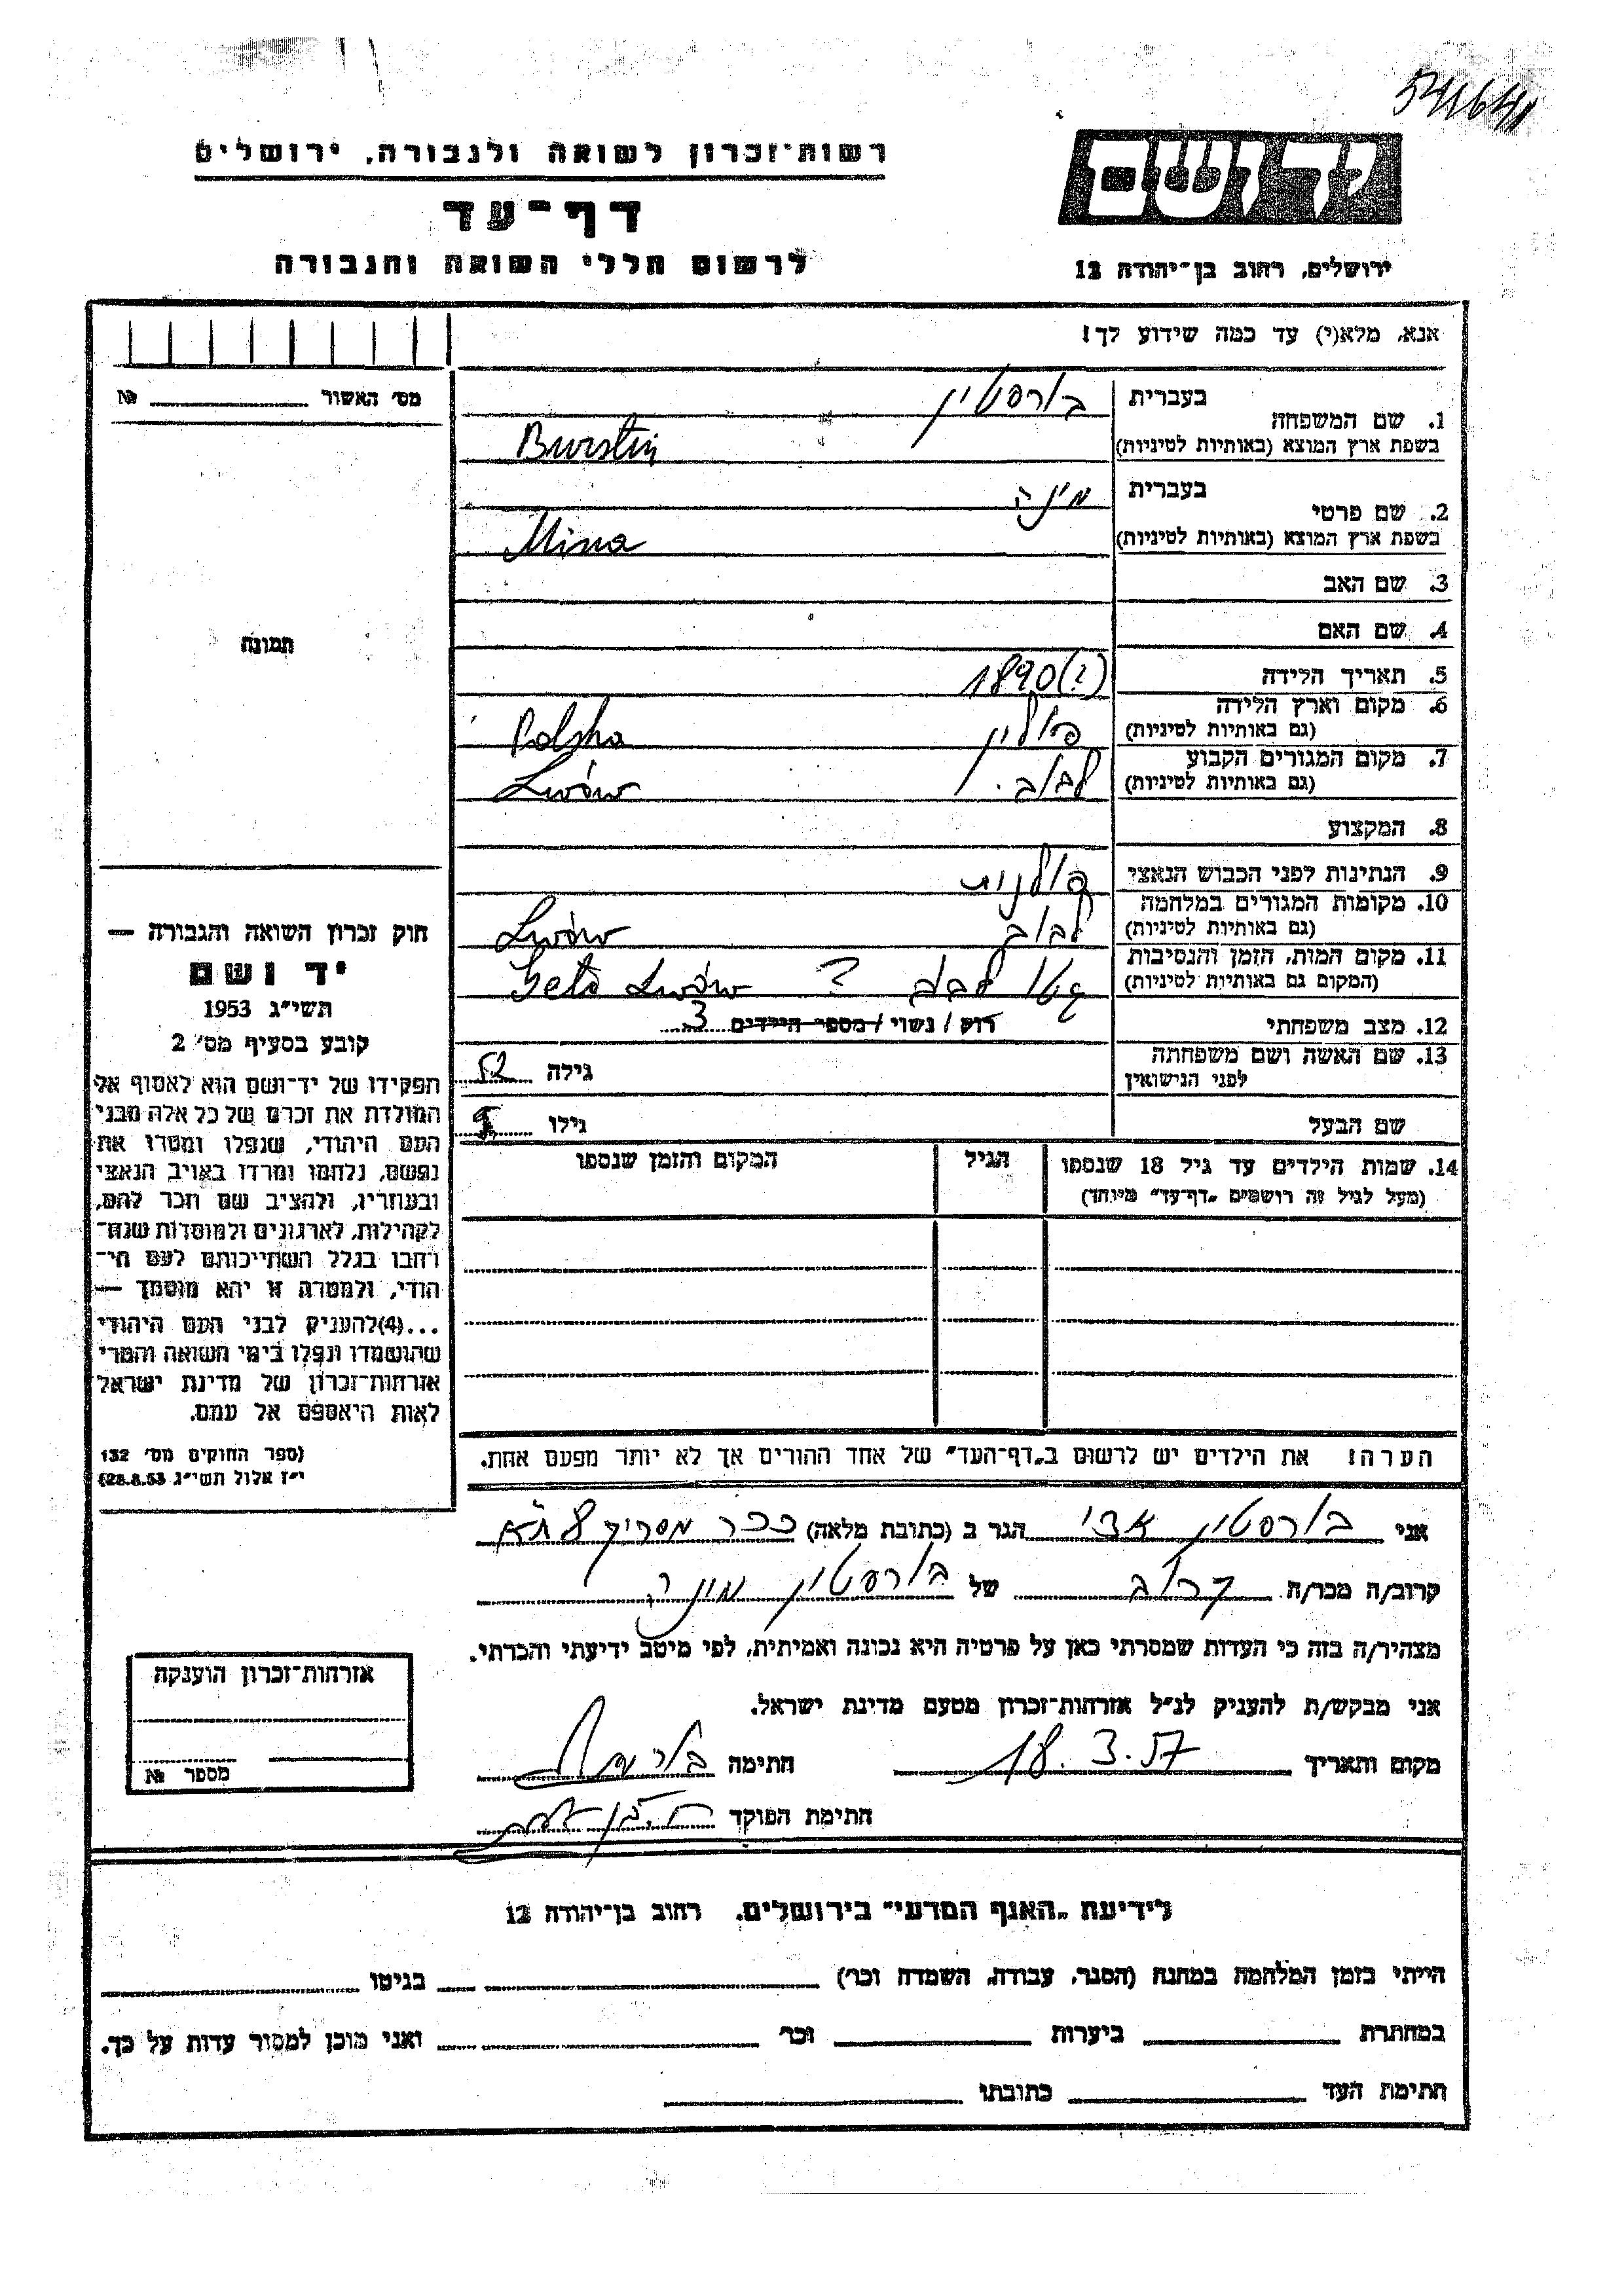 יד ושם
רשות-זכרון לשואה ולגבורה, ירושלים
דף-עד
לרשום חללי השואה והגבורה
ירושלים, רחוב בן-יהודה 12
אנא, מלא(י) עד כמה שידוע לך!
מס' האשור № 
1. שם המשפחה
בעברית בורסטין
בשפת ארץ המוצא (באותיות לטיניות) Burstin
2. שם פרטי
בעברית מינה
בשפת ארץ המוצא (באותיות לטיניות) Mina
3. שם האב
4. שם האם
5. תאריך הלידה 1890(?)
6. מקום וארץ הלידה
(גם באותיות לטיניות) פולין Polska
7. מקום המגורים הקבוע
(גם באותיות לטיניות) לבוב. Lwów
8. המקצוע
9. הנתינות לפני הכבוש הנאצי פולנית
10. מקומות המגורים במלחמה
(גם באותיות לטיניות) לבוב Lwów
11. מקום המות, הזמן והנסיבות
(המקום גם באותיות לטיניות) גטו לבוב ? Geto Lwów
12. מצב משפחתי רוק / נשוי / מספר הילדים 3
13. שם האשה ושם משפחתה
לפני הנישואין גילה 52
שם הבעל גילו
14. שמות הילדים עד גיל 18 שנספו
(מעל לגיל זה רושמים "דף-עד" מיוחד)
הגיל
המקום והזמן שנספו
תמונה
חוק זכרון השואה והגבורה —
יד ושם
תשי"ג 1953
קובע בסעיף מס' 2
תפקידו של יד-ושם הוא לאסוף אל
המולדת את זכרם של כל אלה מבני
העם היהודי, שנפלו ומסרו את
נפשם, נלחמו ומרדו באויב הנאצי
ובעוזריו, ולהציב שם וזכר להם,
לקהילות, לארגונים ולמוסדות שנח-
רבו בגלל השתייכותם לעם הי-
הודי, ולמטרה זו יהא מוסמך —
...(4)להעניק לבני העם היהודי
שהושמדו ונפלו בימי השואה והמרי
אזרחות-זכרון של מדינת ישראל
לאות היאספם אל עמם.
(ספר החוקים מס' 132
י"ז אלול תשי"ג 28.8.53)
הערה! את הילדים יש לרשום ב"דף-העד" של אחד ההורים אך לא יותר מפעם אחת.
אני בורסטין הגר ב (כתובת מלאה) ככר מסריק 8 ת"א
קרוב/ה מכר/ה קרוב של בורשטין מינה
מצהיר/ה בזה כי העדות שמסרתי כאן על פרטיה היא נכונה ואמיתית, לפי מיטב ידיעתי והכרתי.
אני מבקש/ת להעניק לנ"ל אזרחות-זכרון מטעם מדינת ישראל.
מקום ותאריך 18.3.57 חתימה
חתימת הפוקד
אזרחות-זכרון הוענקה
מספר №
לידיעת "האגף המדעי" בירושלים, רחוב בן-יהודה 12
הייתי בזמן המלחמה במחנה (הסגר, עבודה, השמדה וכו') בגיטו
במחתרת ביערות וכו' ואני מוכן למסור עדות על כך.
חתימת העד כתובתו